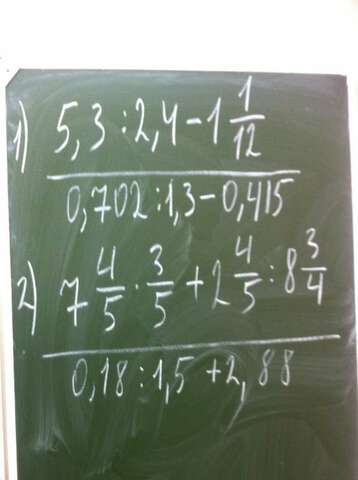 1) 5,3 : 2,4 - 1 1/12
0,702 : 1,3 - 0,415
2) 7 4/5 · 3/5 + 2 4/5 : 8 3/4
0,18 : 1,5 + 2,88